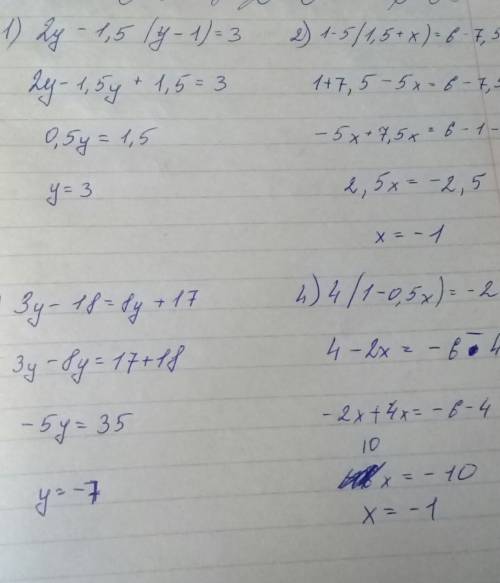 1) 2y - 1,5 (y - 1) = 3
2y - 1,5y + 1,5 = 3
0,5y = 1,5
y = 3
2) 1 - 5 (1,5 + x) = 6 - 7,5
1 + 7,5 - 5x = 6 - 7,5
-5x + 7,5x = 6 - 1 -
2,5x = -2,5
x = -1
3y - 18 = 8y + 17
3y - 8y = 17 + 18
-5y = 35
y = -7
4) 4 (1 - 0,5x) = -2
4 - 2x = -6 - 4
-2x + 4x = -6 - 4
10
x = -10
x = -1